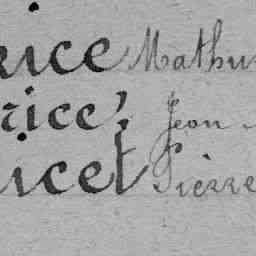 rice Mathu
rice, Jean
ricet Pierre